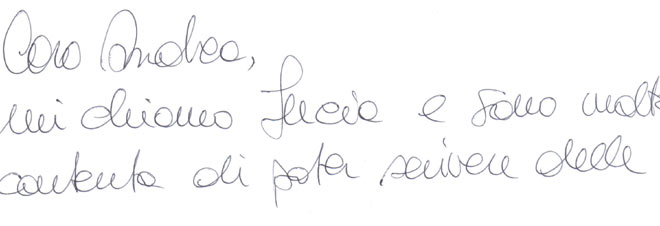 Caro Andrea,
mi chiamo Lucia e sono molto
contenta di poter scrivere delle